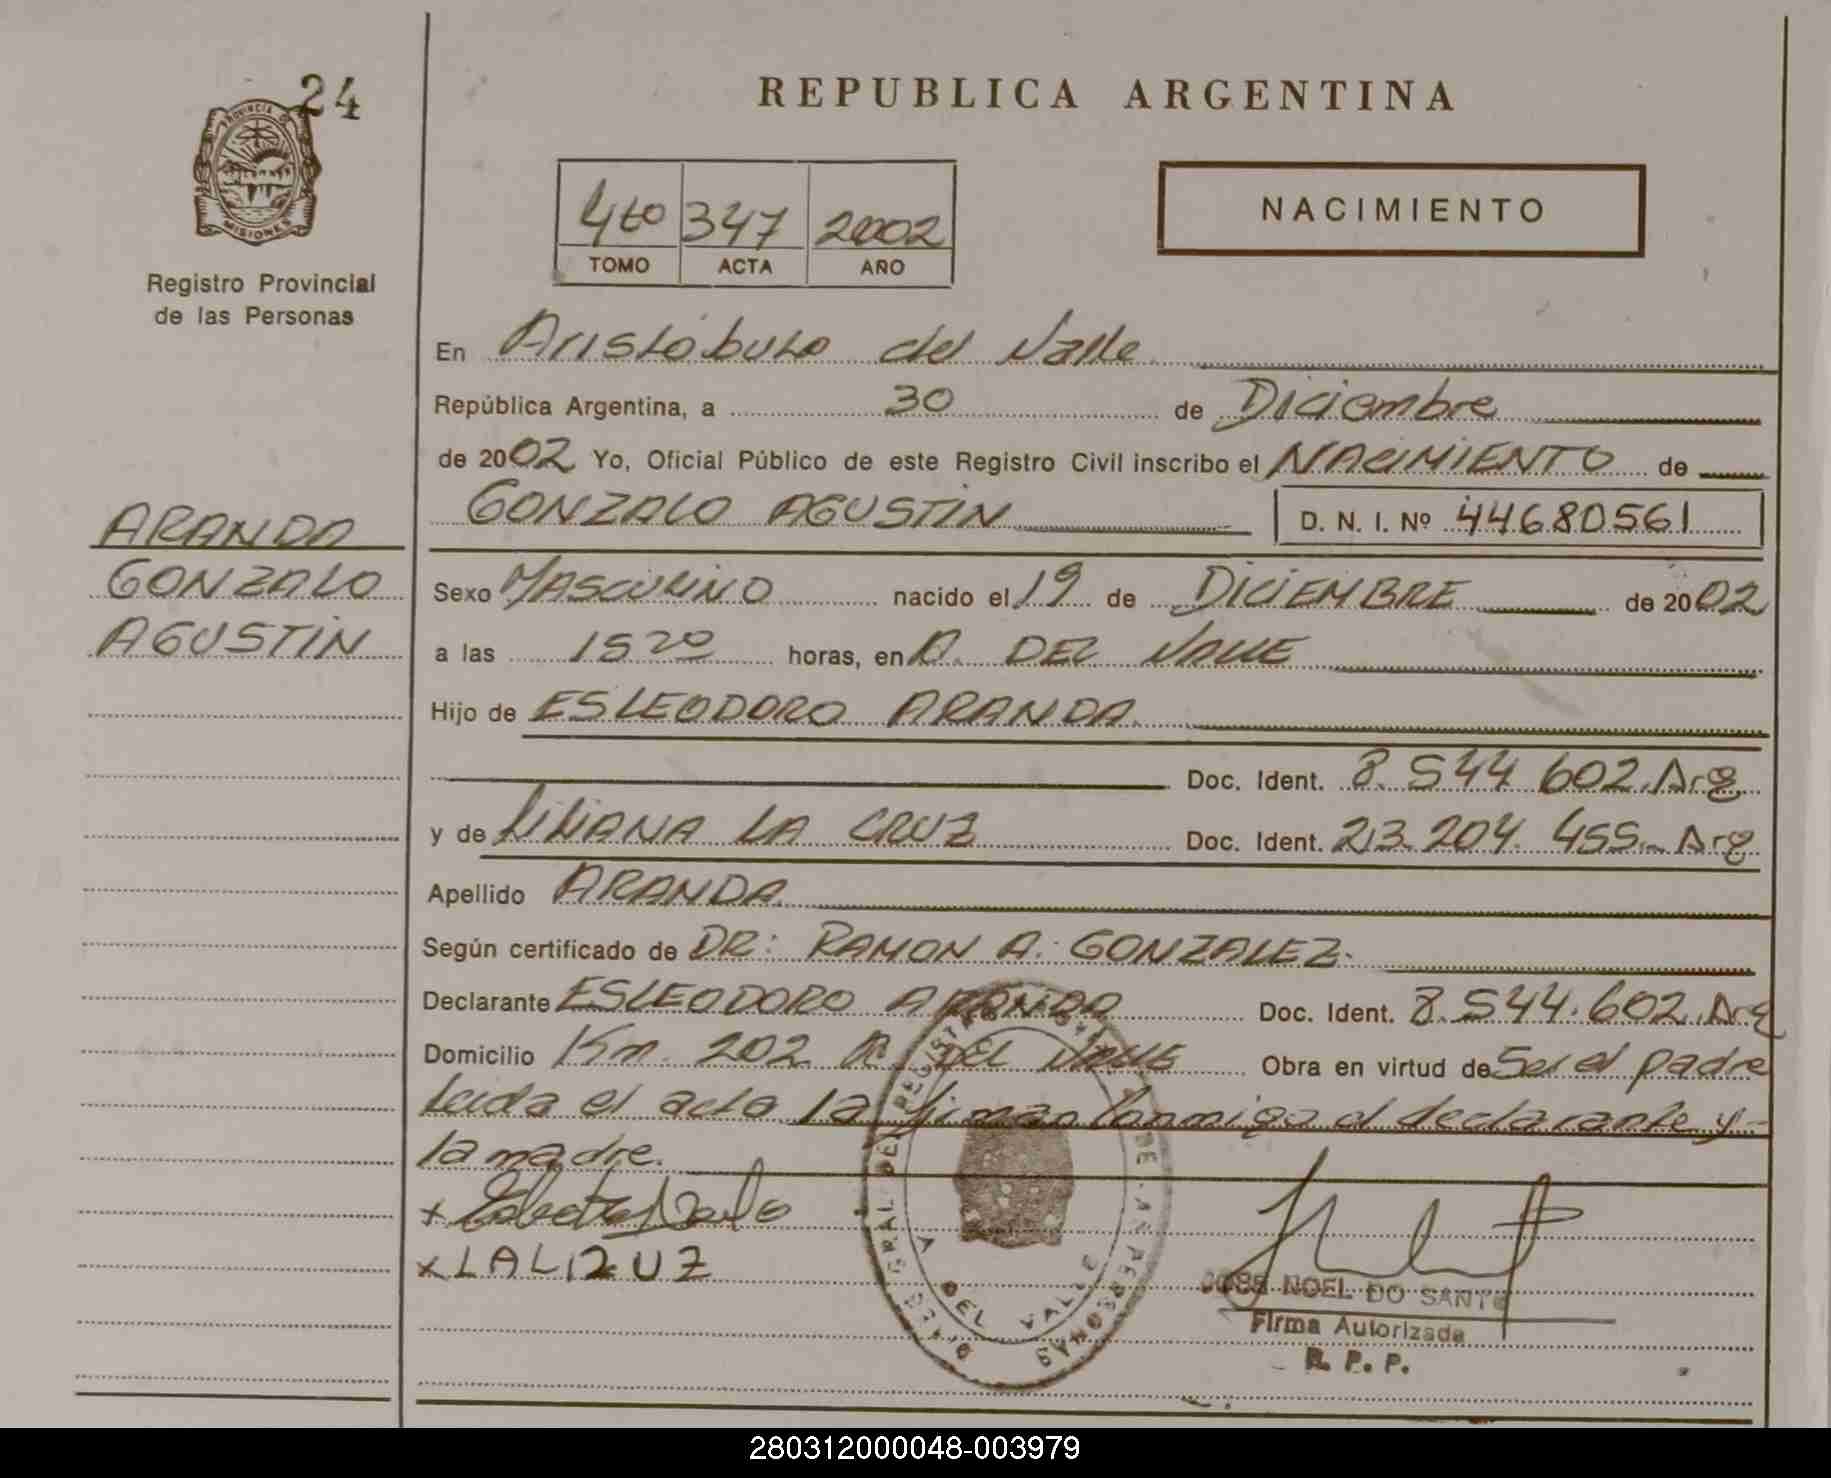 24
PROVINCIA DE
MISIONES
Registro Provincial
de las Personas
ARANDA
GONZALO
AGUSTIN
REPUBLICA ARGENTINA
4to 347 2002
TOMO ACTA AÑO
NACIMIENTO
En Aristóbulo del Valle
República Argentina, a 30 de Diciembre
de 2002 Yo, Oficial Público de este Registro Civil inscribo el NACIMIENTO de
GONZALO AGUSTIN D. N. I. Nº 44680561
Sexo MASCULINO nacido el 19 de DICIEMBRE de 2002
a las 15 20 horas, en A. DEL VALLE
Hijo de ESLEODORO ARANDA
Doc. Ident. 8.544.602. Arg
y de LILIANA LA CRUZ Doc. Ident. 23.204.455 Arg
Apellido ARANDA
Según certificado de DR: RAMON A. GONZALEZ.
Declarante ESLEODORO ARANDA Doc. Ident. 8.544.602. Arg
Domicilio Km. 202 A. DEL VALLE Obra en virtud de Ser el padre
Leida el acta la firman conmigo el declarante y
la madre.
x
x LALIZUZ
JOSE NOEL DO SANTO
Firma Autorizada
R. P. P.
DEL VALLE
280312000048-003979